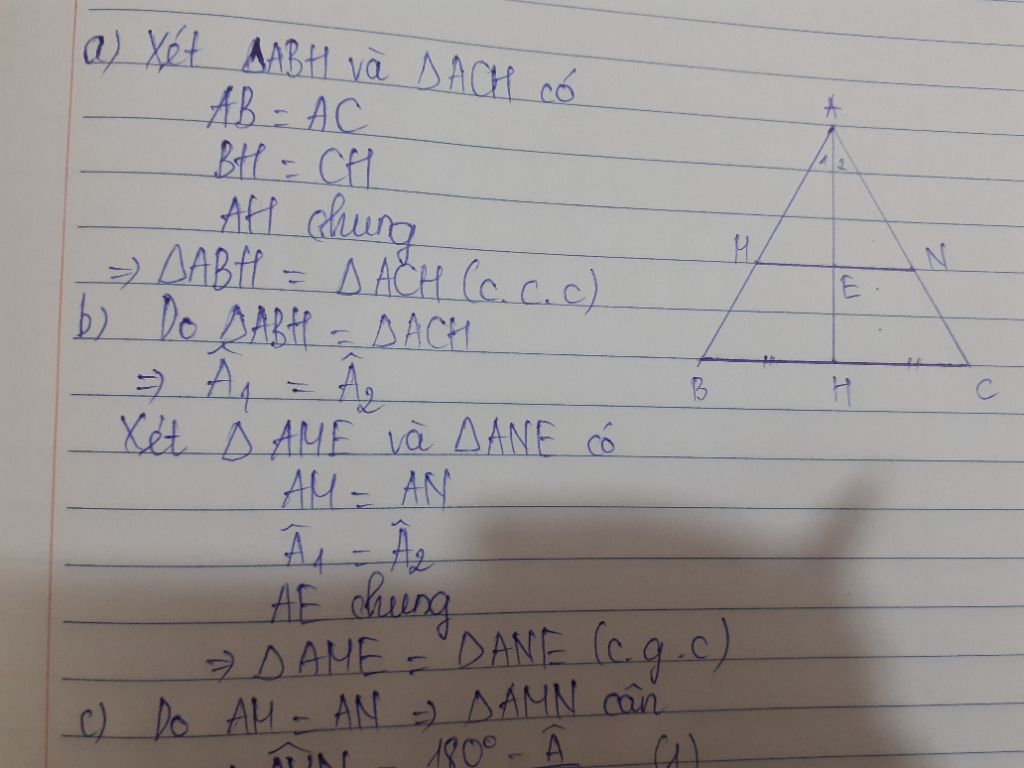 a) Xét ΔABH và ΔACH có
AB = AC
BH = CH
AH chung
=> ΔABH = ΔACH (c.c.c)
b) Do ΔABH = ΔACH
=> Â1 = Â2
Xét Δ AME và ΔANE có
AM = AN
Â1 = Â2
AE chung
=> ΔAME = ΔANE (c.g.c)
c) Do AM = AN => ΔAMN cân
180° - Â (1)
A
1 2
M N
E
B H C